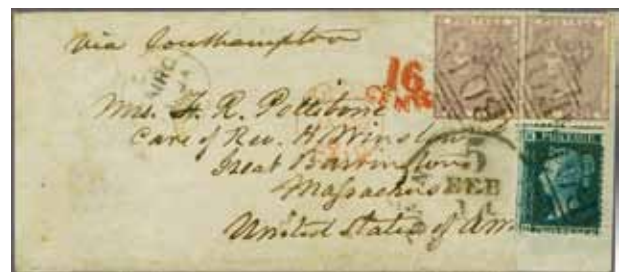 via Southampton
16
CENTS
Mrs. F. R. Pettibone
Care of Rev. H. Winslow
Great Barrington
Massachus
United States of Am
5
FEB
14